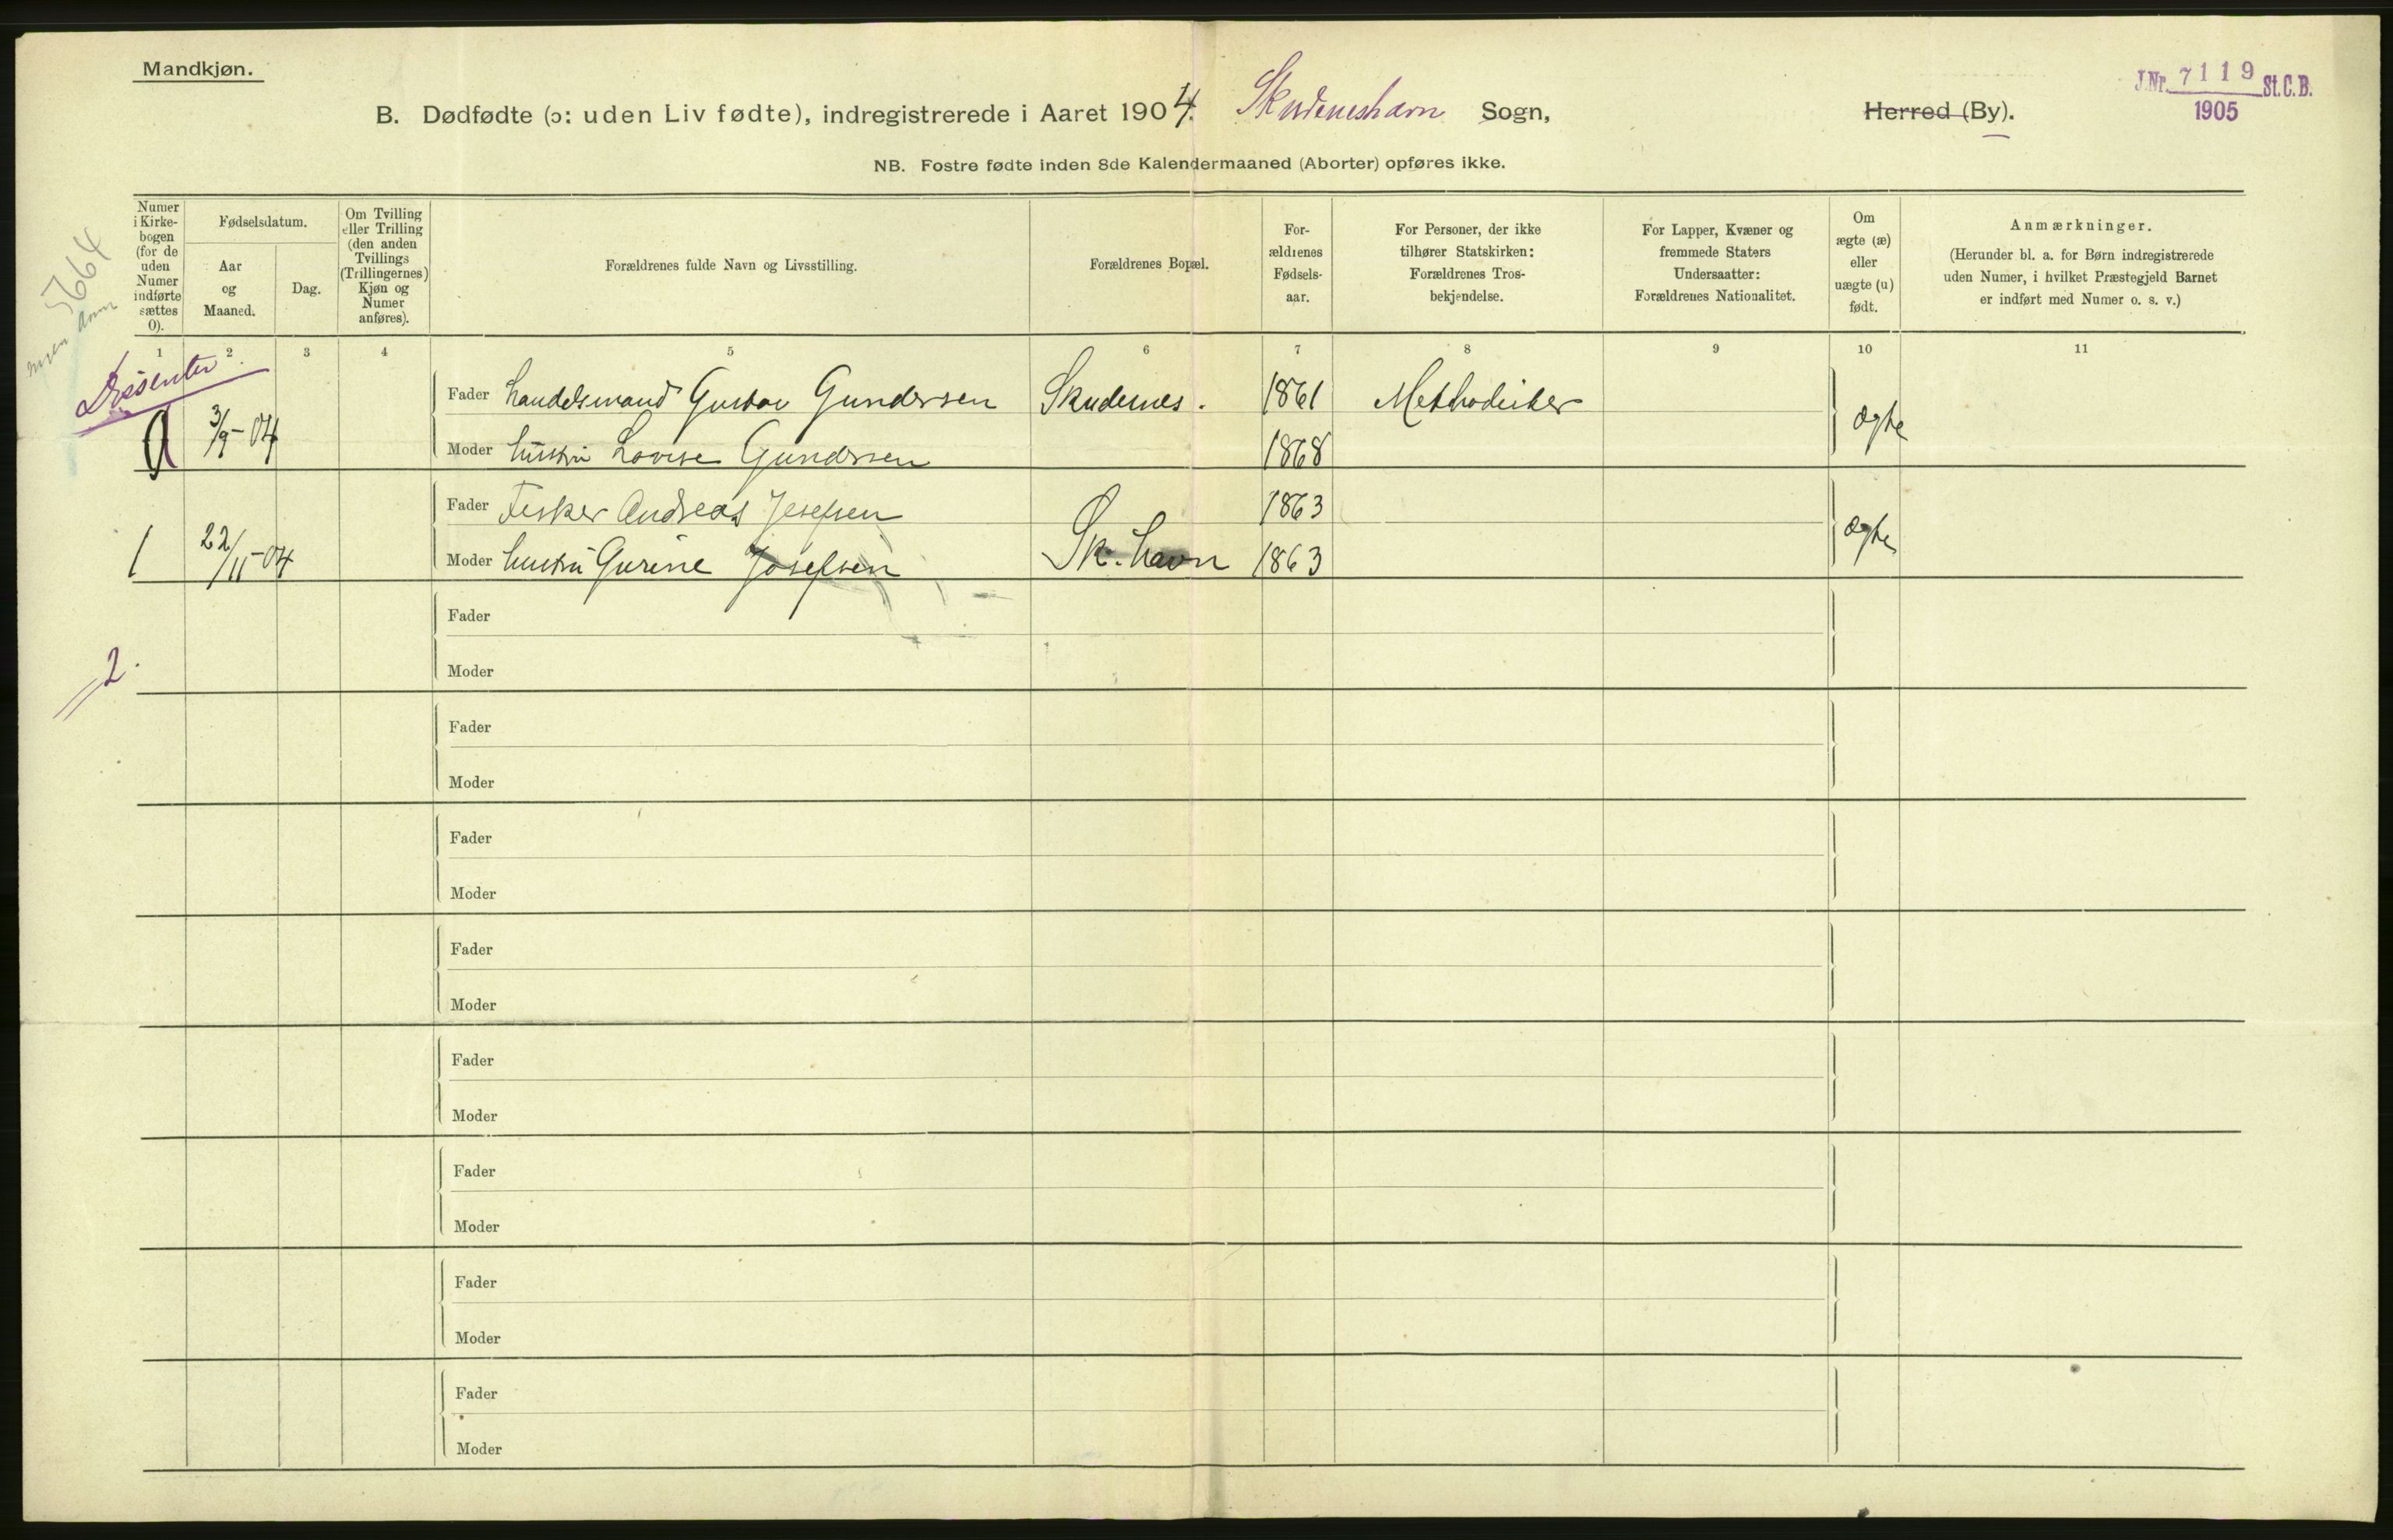 Mandkjøn.
J.Nr. 7119 St.C.B.
1905
B. Dødfødte (ɔ: uden Liv fødte), indregistrerede i Aaret 1904. Skudeneshavn Sogn, Herred (By).
NB. Fostre fødte inden 8de Kalendermaaned (Aborter) opføres ikke.
Numer
i Kirke-
bogen
(for de
uden
Numer
indførte
sættes
0).
Fødselsdatum.
Aar
og
Maaned.
Dag.
Om Tvilling
eller Trilling
(den anden
Tvillings
(Trillingernes)
Kjøn og
Numer
anføres).
Forældrenes fulde Navn og Livsstilling.
Forældrenes Bopæl.
For-
ældrenes
Fødsels-
aar.
For Personer, der ikke
tilhører Statskirken:
Forældrenes Tros-
bekjendelse.
For Lapper, Kvæner og
fremmede Staters
Undersaatter:
Forældrenes Nationalitet.
Om
ægte (æ)
eller
uægte (u)
født.
Anmærkninger.
(Herunder bl. a. for Børn indregistrerede
uden Numer, i hvilket Præstegjeld Barnet
er indført med Numer o. s. v.)
1 2 3 4 5 6 7 8 9 10 11
Dissenter
Fader Handelsmand Gustav Gundersen Skudenes. 1861 Methodister
3/9-04 ægte
Moder hustru Lovise Gundersen 1868
Fader Fisker Andreas Josefsen 1863
1 22/11-04 ægte
Moder hustru Gurine Josefsen Sk.havn 1863
Fader
2.
Moder
Fader
Moder
Fader
Moder
Fader
Moder
Fader
Moder
Fader
Moder
Fader
Moder
Fader
Moder